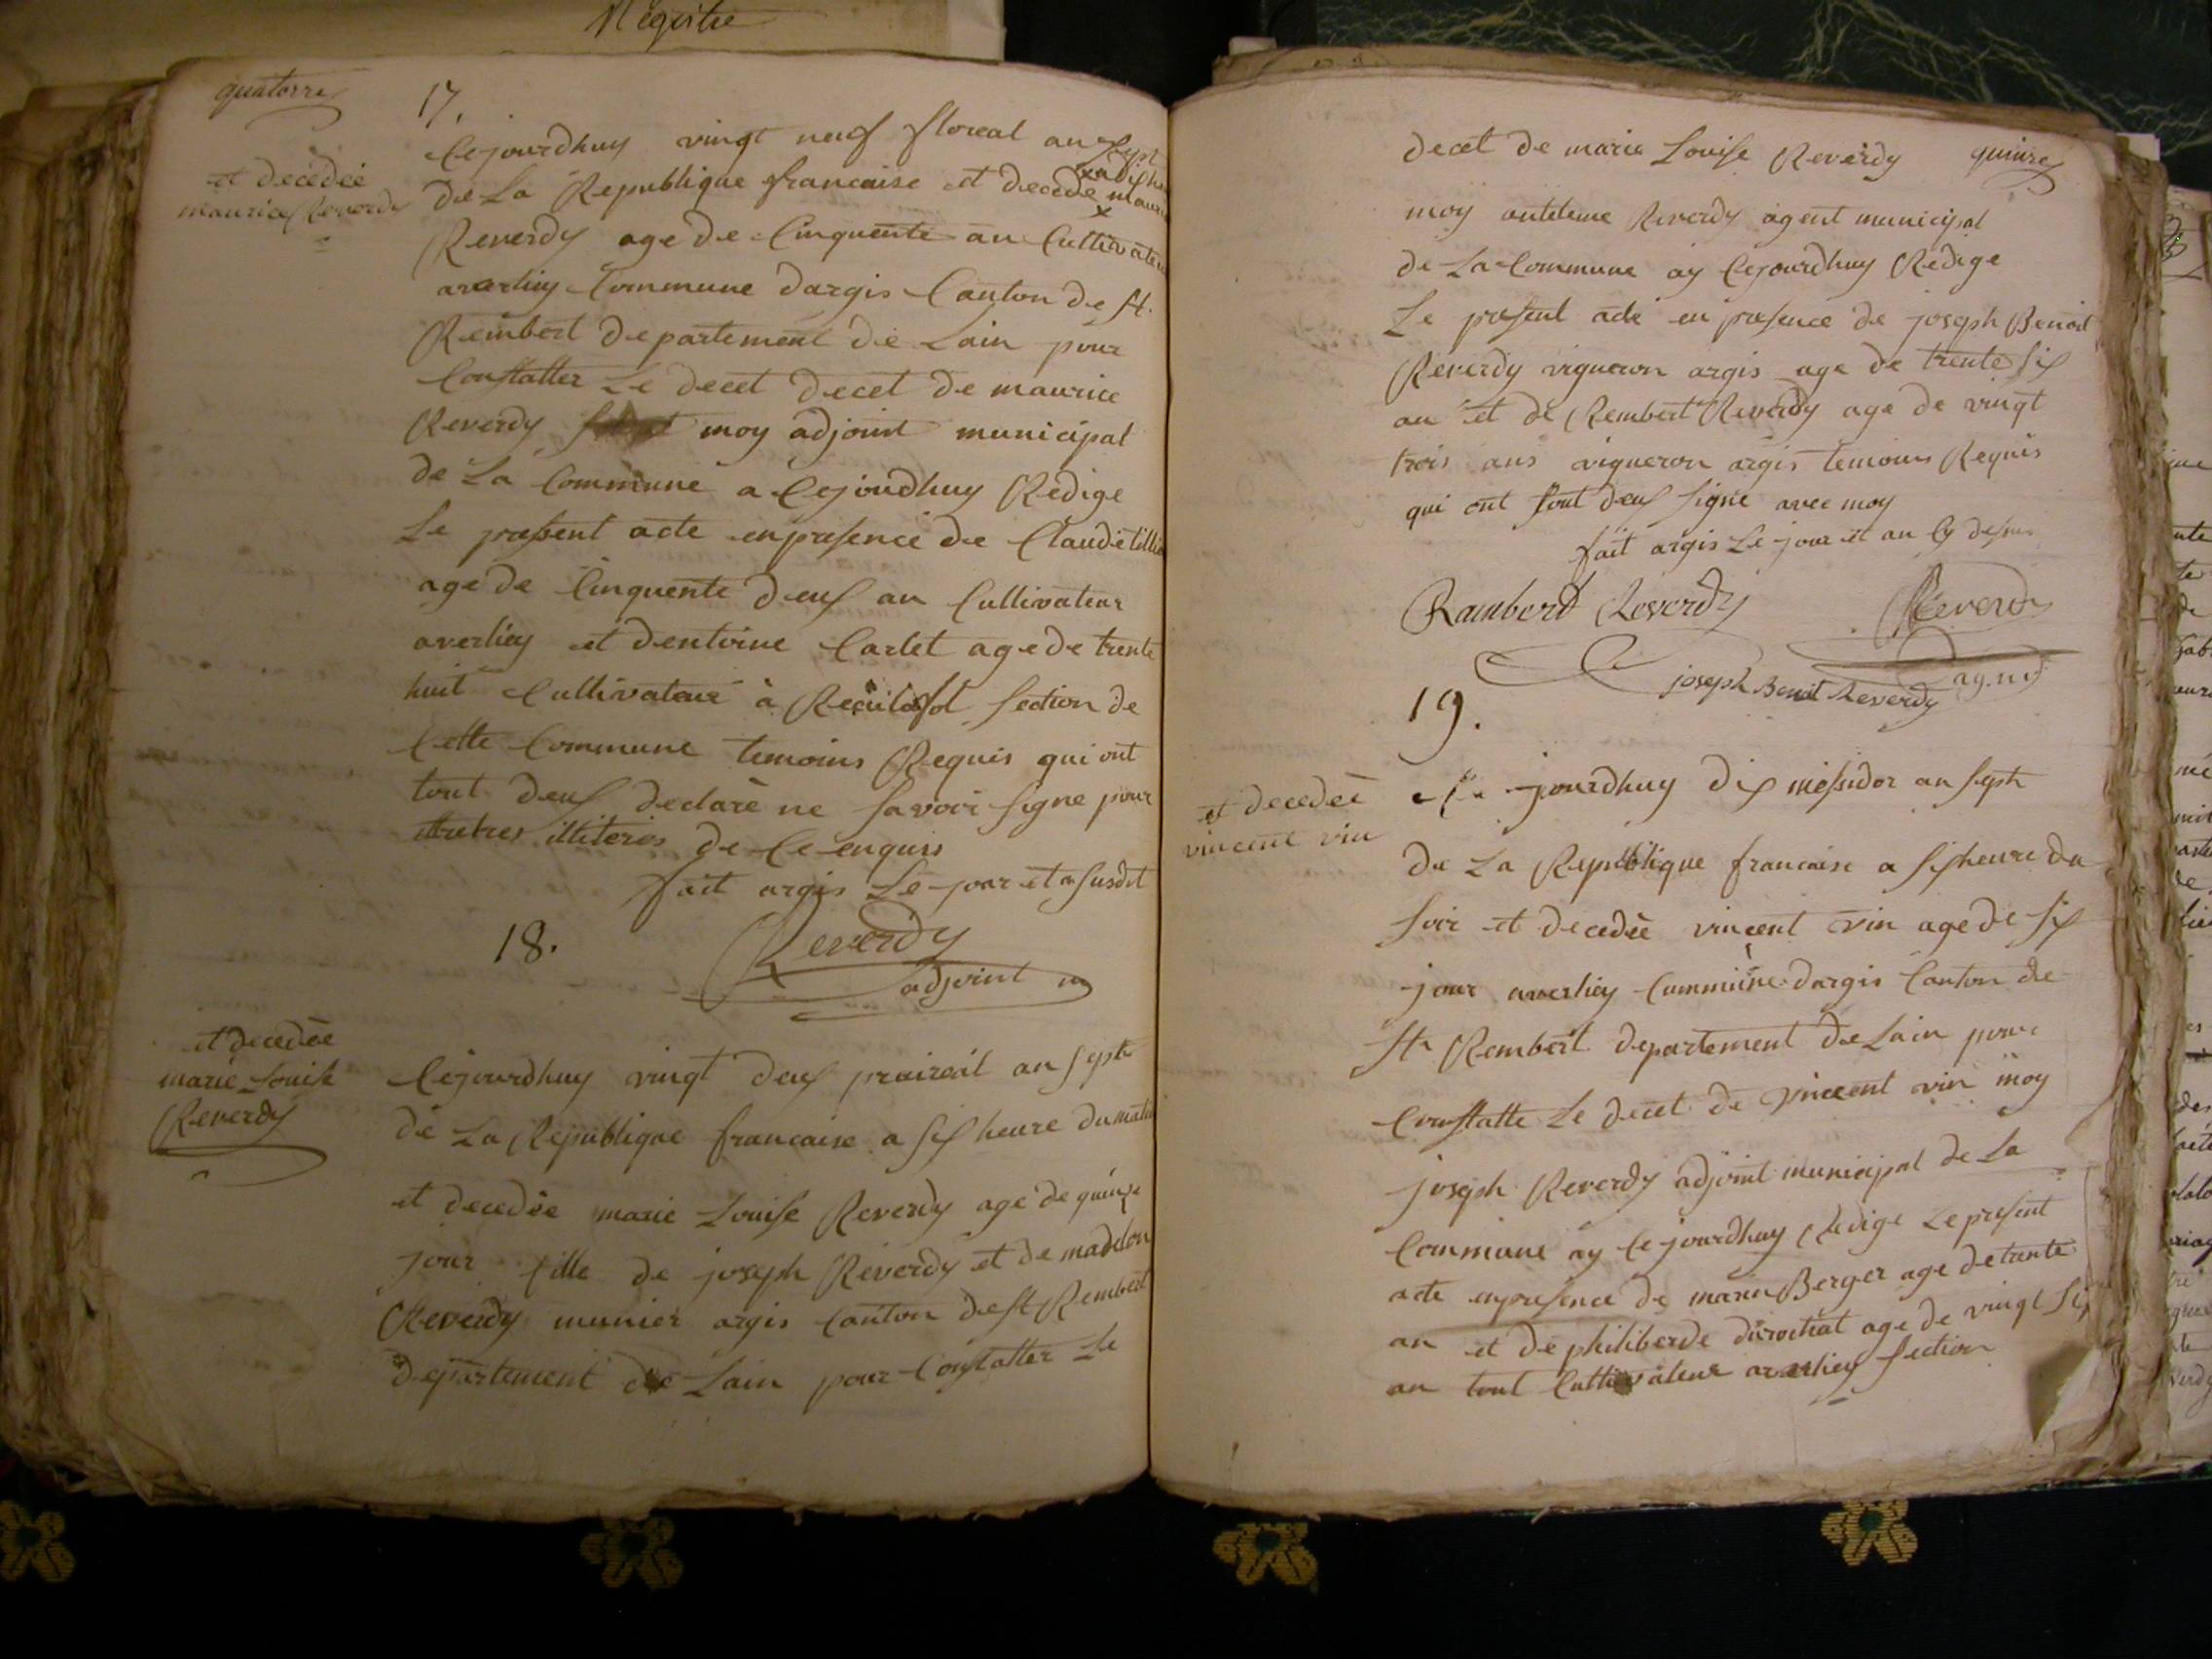 Régistre
quatorze
17.
et decédée
maurice Reverdy
Cejourdhuy vingt neuf floreal an Sept
de La Republique francaise et decede maurice
Reverdy age de Cinquente an Cultivateur
averliey Commune dargis Canton de St.
Rembert departement de Lain pour
Constatter Le decet decet de maurice
Reverdy moy adjoint municipal
de La Commune a Cejoudhuy Redige
Le present acte en presence de Claude
age de Cinquente deux an Cultivateur
averliey et dentoine Carlet age de trente
huit Cultivateur à section de
Cette Commune temoins Requis qui ont
tout deux declaré ne savoir signe pour
illiteres de Ce enquis
fait argis Le jour et a susdit
Reverdy
adjoint m
18.
et decedée
marie Louise
Reverdy
Cejourdhuy vingt deux prairéal an septe
de La Republique francaise a six heure du matin
et decedée marie Louise Reverdy age de quinze
jour fille de joseph Reverdy et de madelon
Reverdy munier argis Canton de st Rembert
departement de Lain pour Constatter Le
decet de marie Louise Reverdy
quinze
moy anteleme Reverdy agent municipal
de La Commune ay Cejourdhuy Redige
Le present acte en presence de joseph Benoit
Reverdy vigneron argis age de trente six
an et de Rembert Reverdy age de vingt
trois ans vigneron argis temoins Requis
qui ont tout deux signé avec moy
fait argis Le jour et an Cy desus
Rambert Reverdy
Reverdy
agent
joseph Benoit Reverdy
19.
et decedée
vincent vin
Ce jourdhuy dix messidor an septe
de La Republique francaise a six heure du
soir et decedée vincent vin age de six
jour averliey Commune dargis Canton de
St Rembert departement de Lain pour
Constatte Le decet de vincent vin moy
joseph Reverdy adjoint municipal de La
Commune ay Ce jourdhuy Redige Le present
acte en presence de marin Berger age de trente
an et de philiberde durochat age de vingt six
an tout Cultivateur averliey section